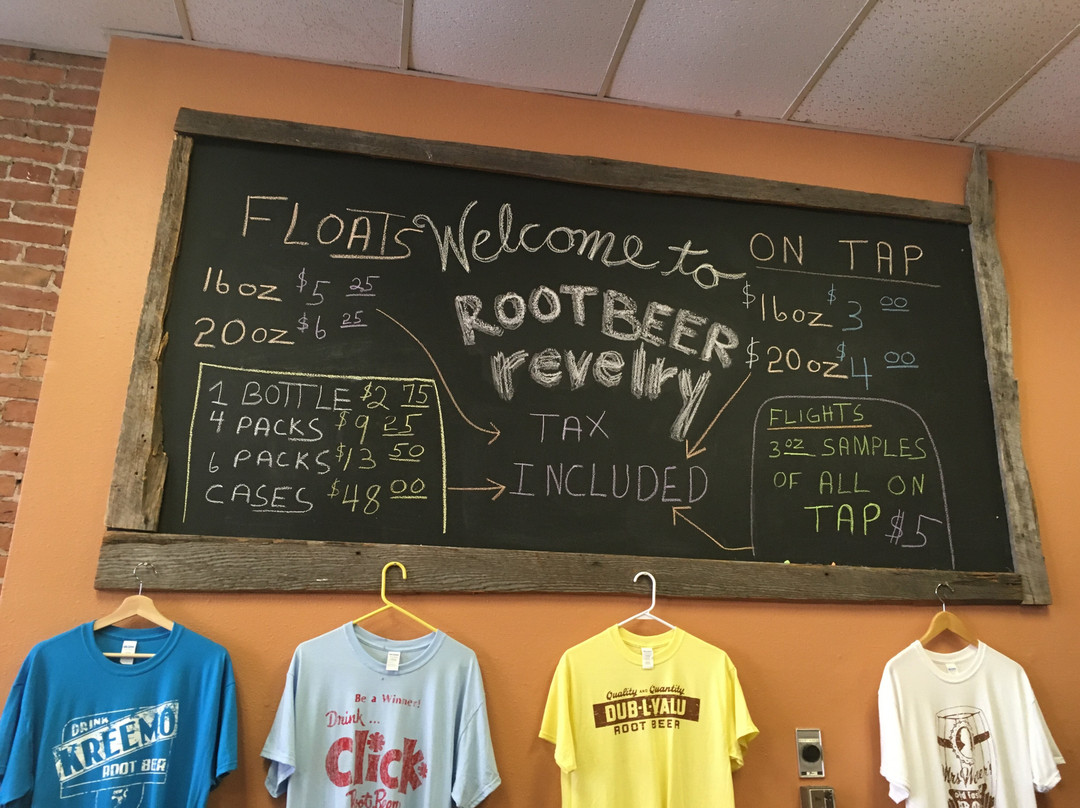 FLOATS
16oz $5 25
20oz $6 25
1 BOTTLE $2 75
4 PACKS $9 25
6 PACKS $13 50
CASES $48 00
Welcome to
ROOTBEER
revelry
TAX
INCLUDED
ON TAP
$16oz $3 00
$20oz $4 00
FLIGHTS
3oz SAMPLES
OF ALL ON
TAP $5
DRINK
KREEMO
ROOT BEER
Be a Winner!
Drink ...
Click
Root Beer
Quality and Quantity
DUB-L-VALU
ROOT BEER
Mrs
Old